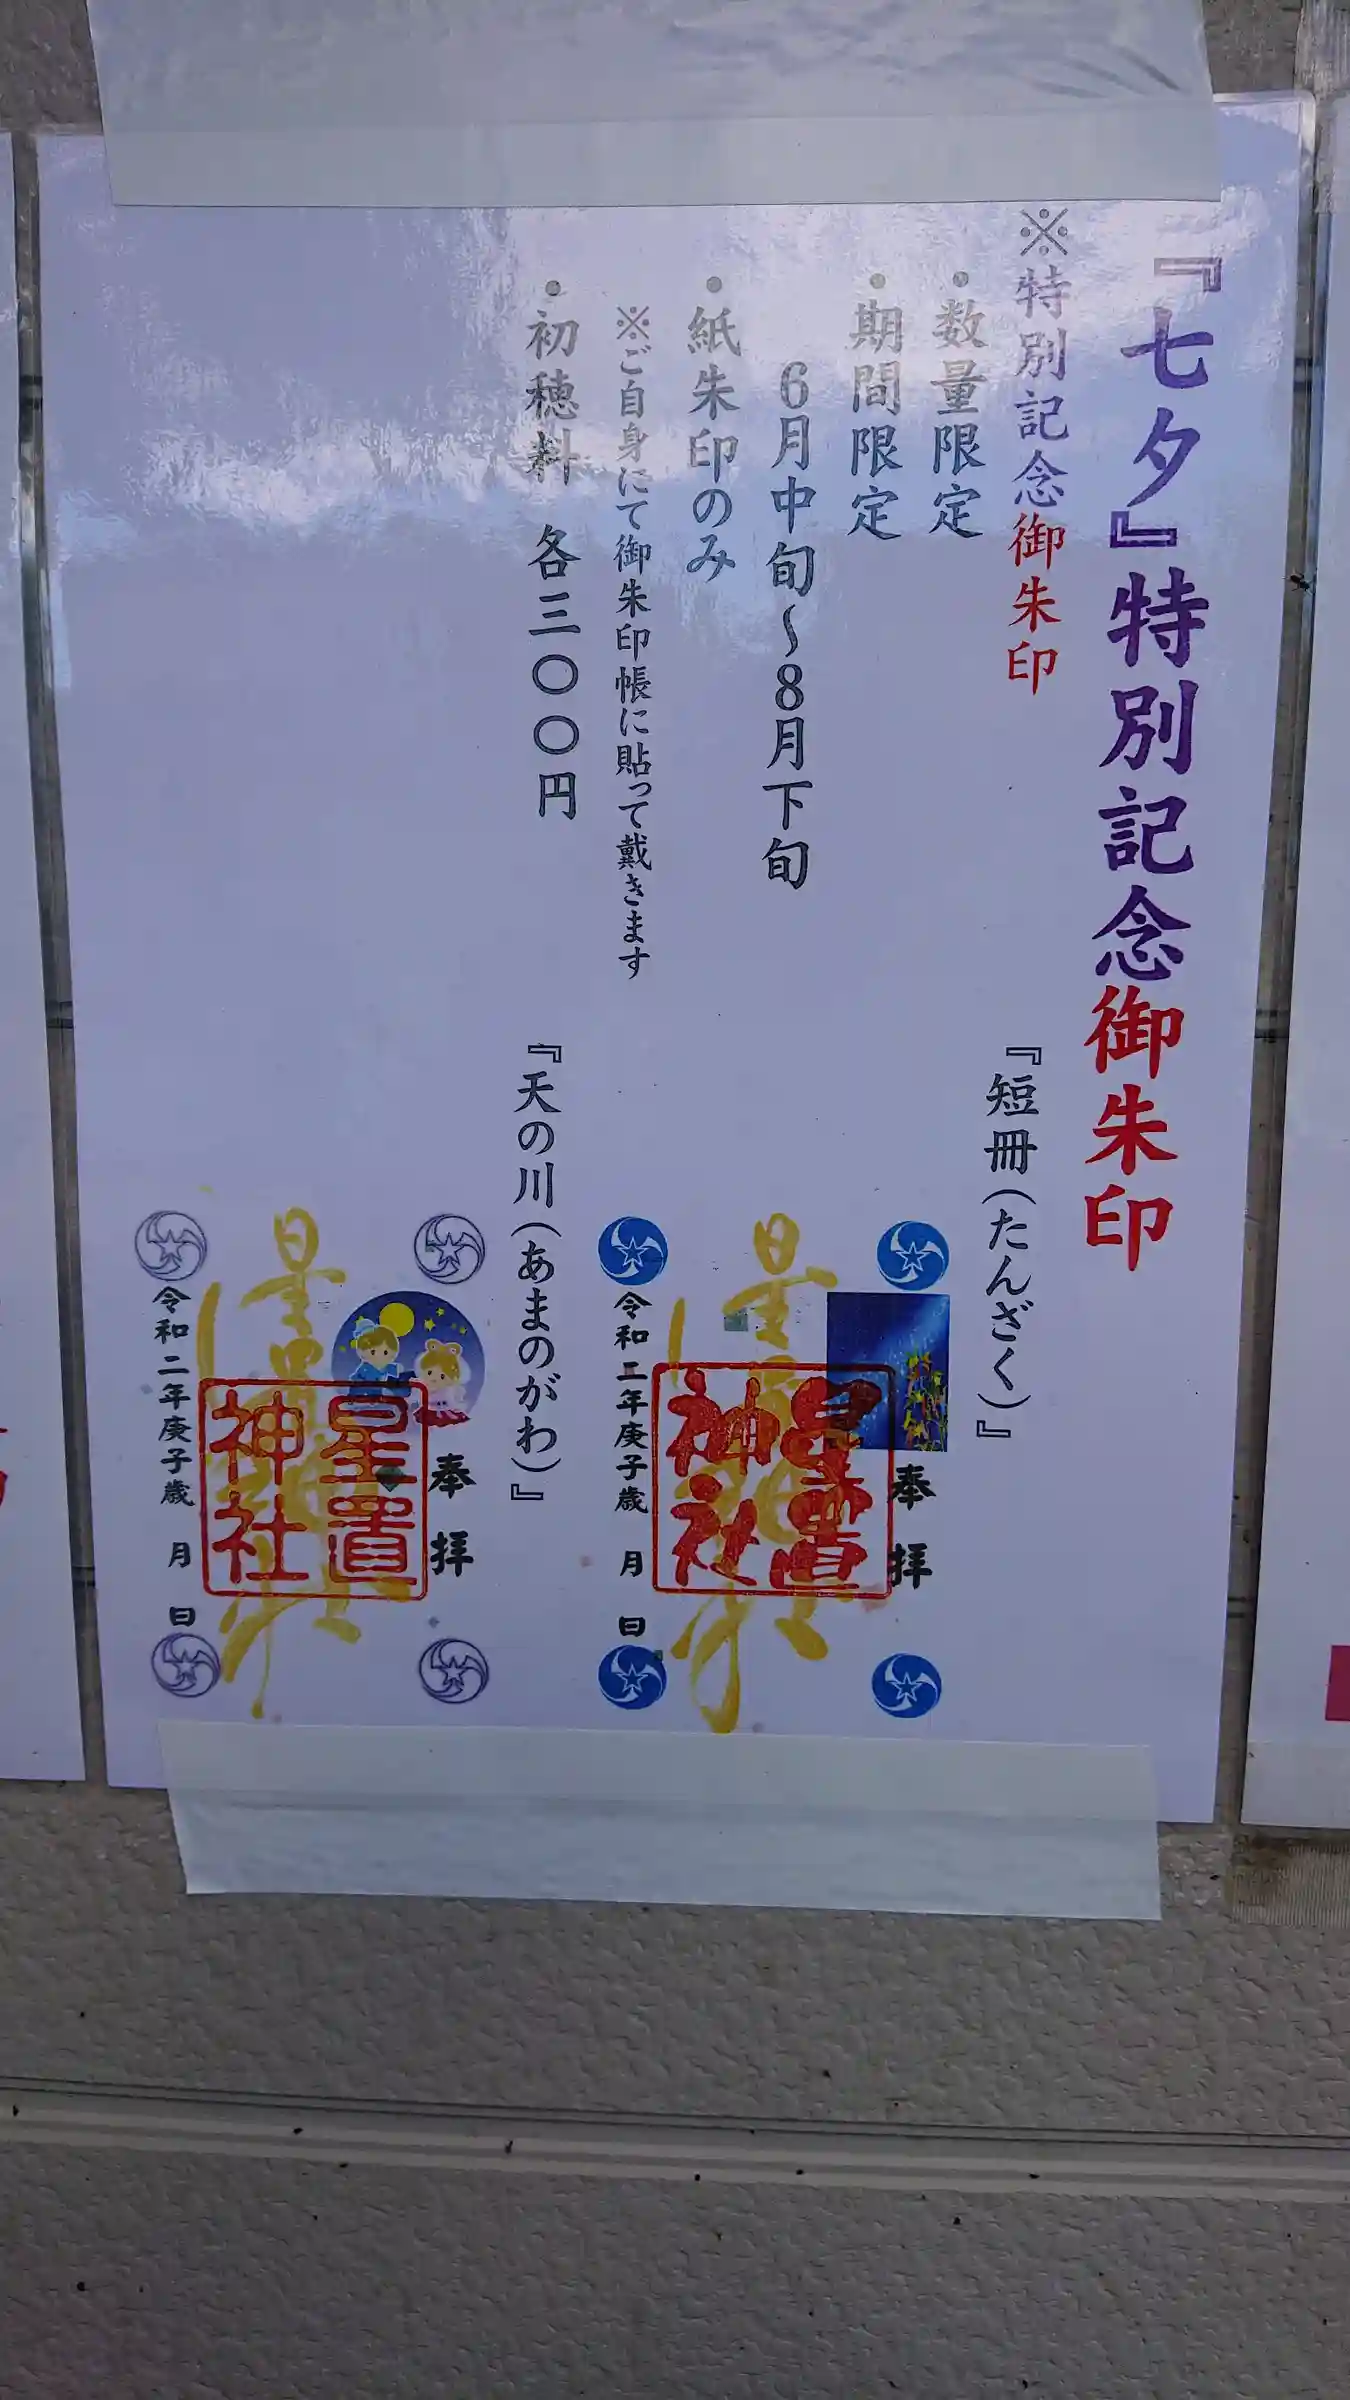 『七夕』特別記念御朱印
※特別記念御朱印
・数量限定
・期間限定
6月中旬～8月下旬
・紙朱印のみ
※ご自身にて御朱印帳に貼って戴きます
・初穂料 各三〇〇円
『短冊(たんざく)』
奉拝
星置神社
令和二年庚子歳 月 日
『天の川(あまのがわ)』
奉拝
星置神社
令和二年庚子歳 月 日